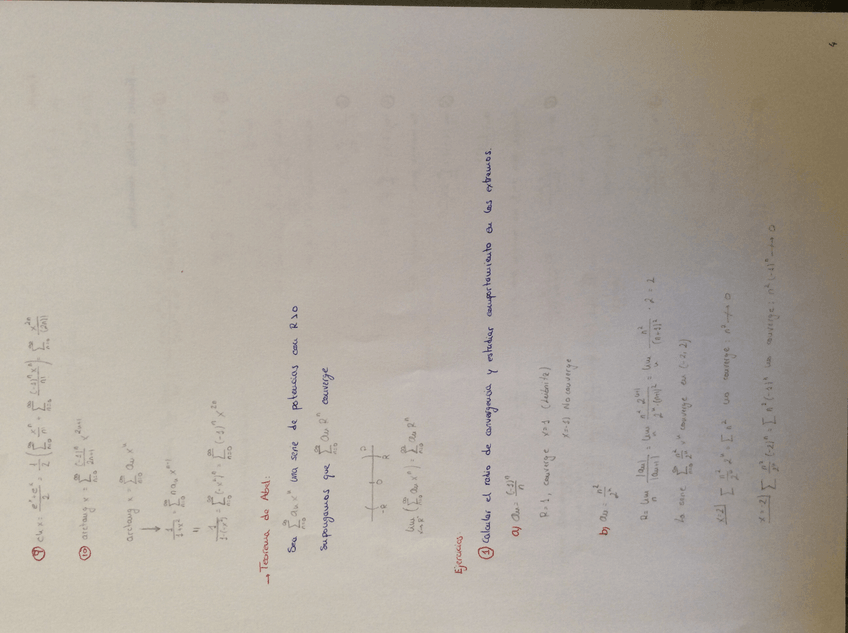 4
⑨ ch x = (e^x + e^-x)/2 = 1/2 (∑_{n=0}^∞ x^n/n! + ∑_{n=0}^∞ (-1)^n x^n/n!) = ∑_{n=0}^∞ x^{2n}/(2n)!
⑩ arctang x = ∑_{n=0}^∞ (-1)^n/(2n+1) x^{2n+1}
arctang x = ∑_{n=0}^∞ a_n x^n
↓
1/(1+x²) = ∑_{n=0}^∞ n a_n x^{n-1}
1/(1-(-x²)) = ∑_{n=0}^∞ (-x²)^n = ∑_{n=0}^∞ (-1)^n x^{2n}
→ Teorema de Abel:
Sea ∑_{n=0}^∞ a_n x^n una serie de potencias con R>0
Supongamos que ∑_{n=0}^∞ a_n R^n converge
-R 0 R
lim (∑_{n=0}^∞ a_n x^n) = ∑_{n=0}^∞ a_n R^n
Ejercicios
① Calcular el radio de convergencia y estudiar comportamiento en los extremos.
a) a_n = (-1)^n/n
R=1, converge x=1 (Leibnitz)
x=-1 No converge
b) a_n = n²/2^n
R = lim_n |a_n|/|a_{n+1}| = lim_n n² 2^{n+1}/2^n (n+1)² = lim n²/(n+1)² · 2 = 2
la serie ∑ n²/2^n x^n converge en (-2, 2)
x=2| ∑ n²/2^n 2^n = ∑ n² no converge : n² ↛ 0
x=-2| ∑ n²/2^n (-2)^n = ∑ n² (-1)^n no converge : n² (-1)^n ↛ 0